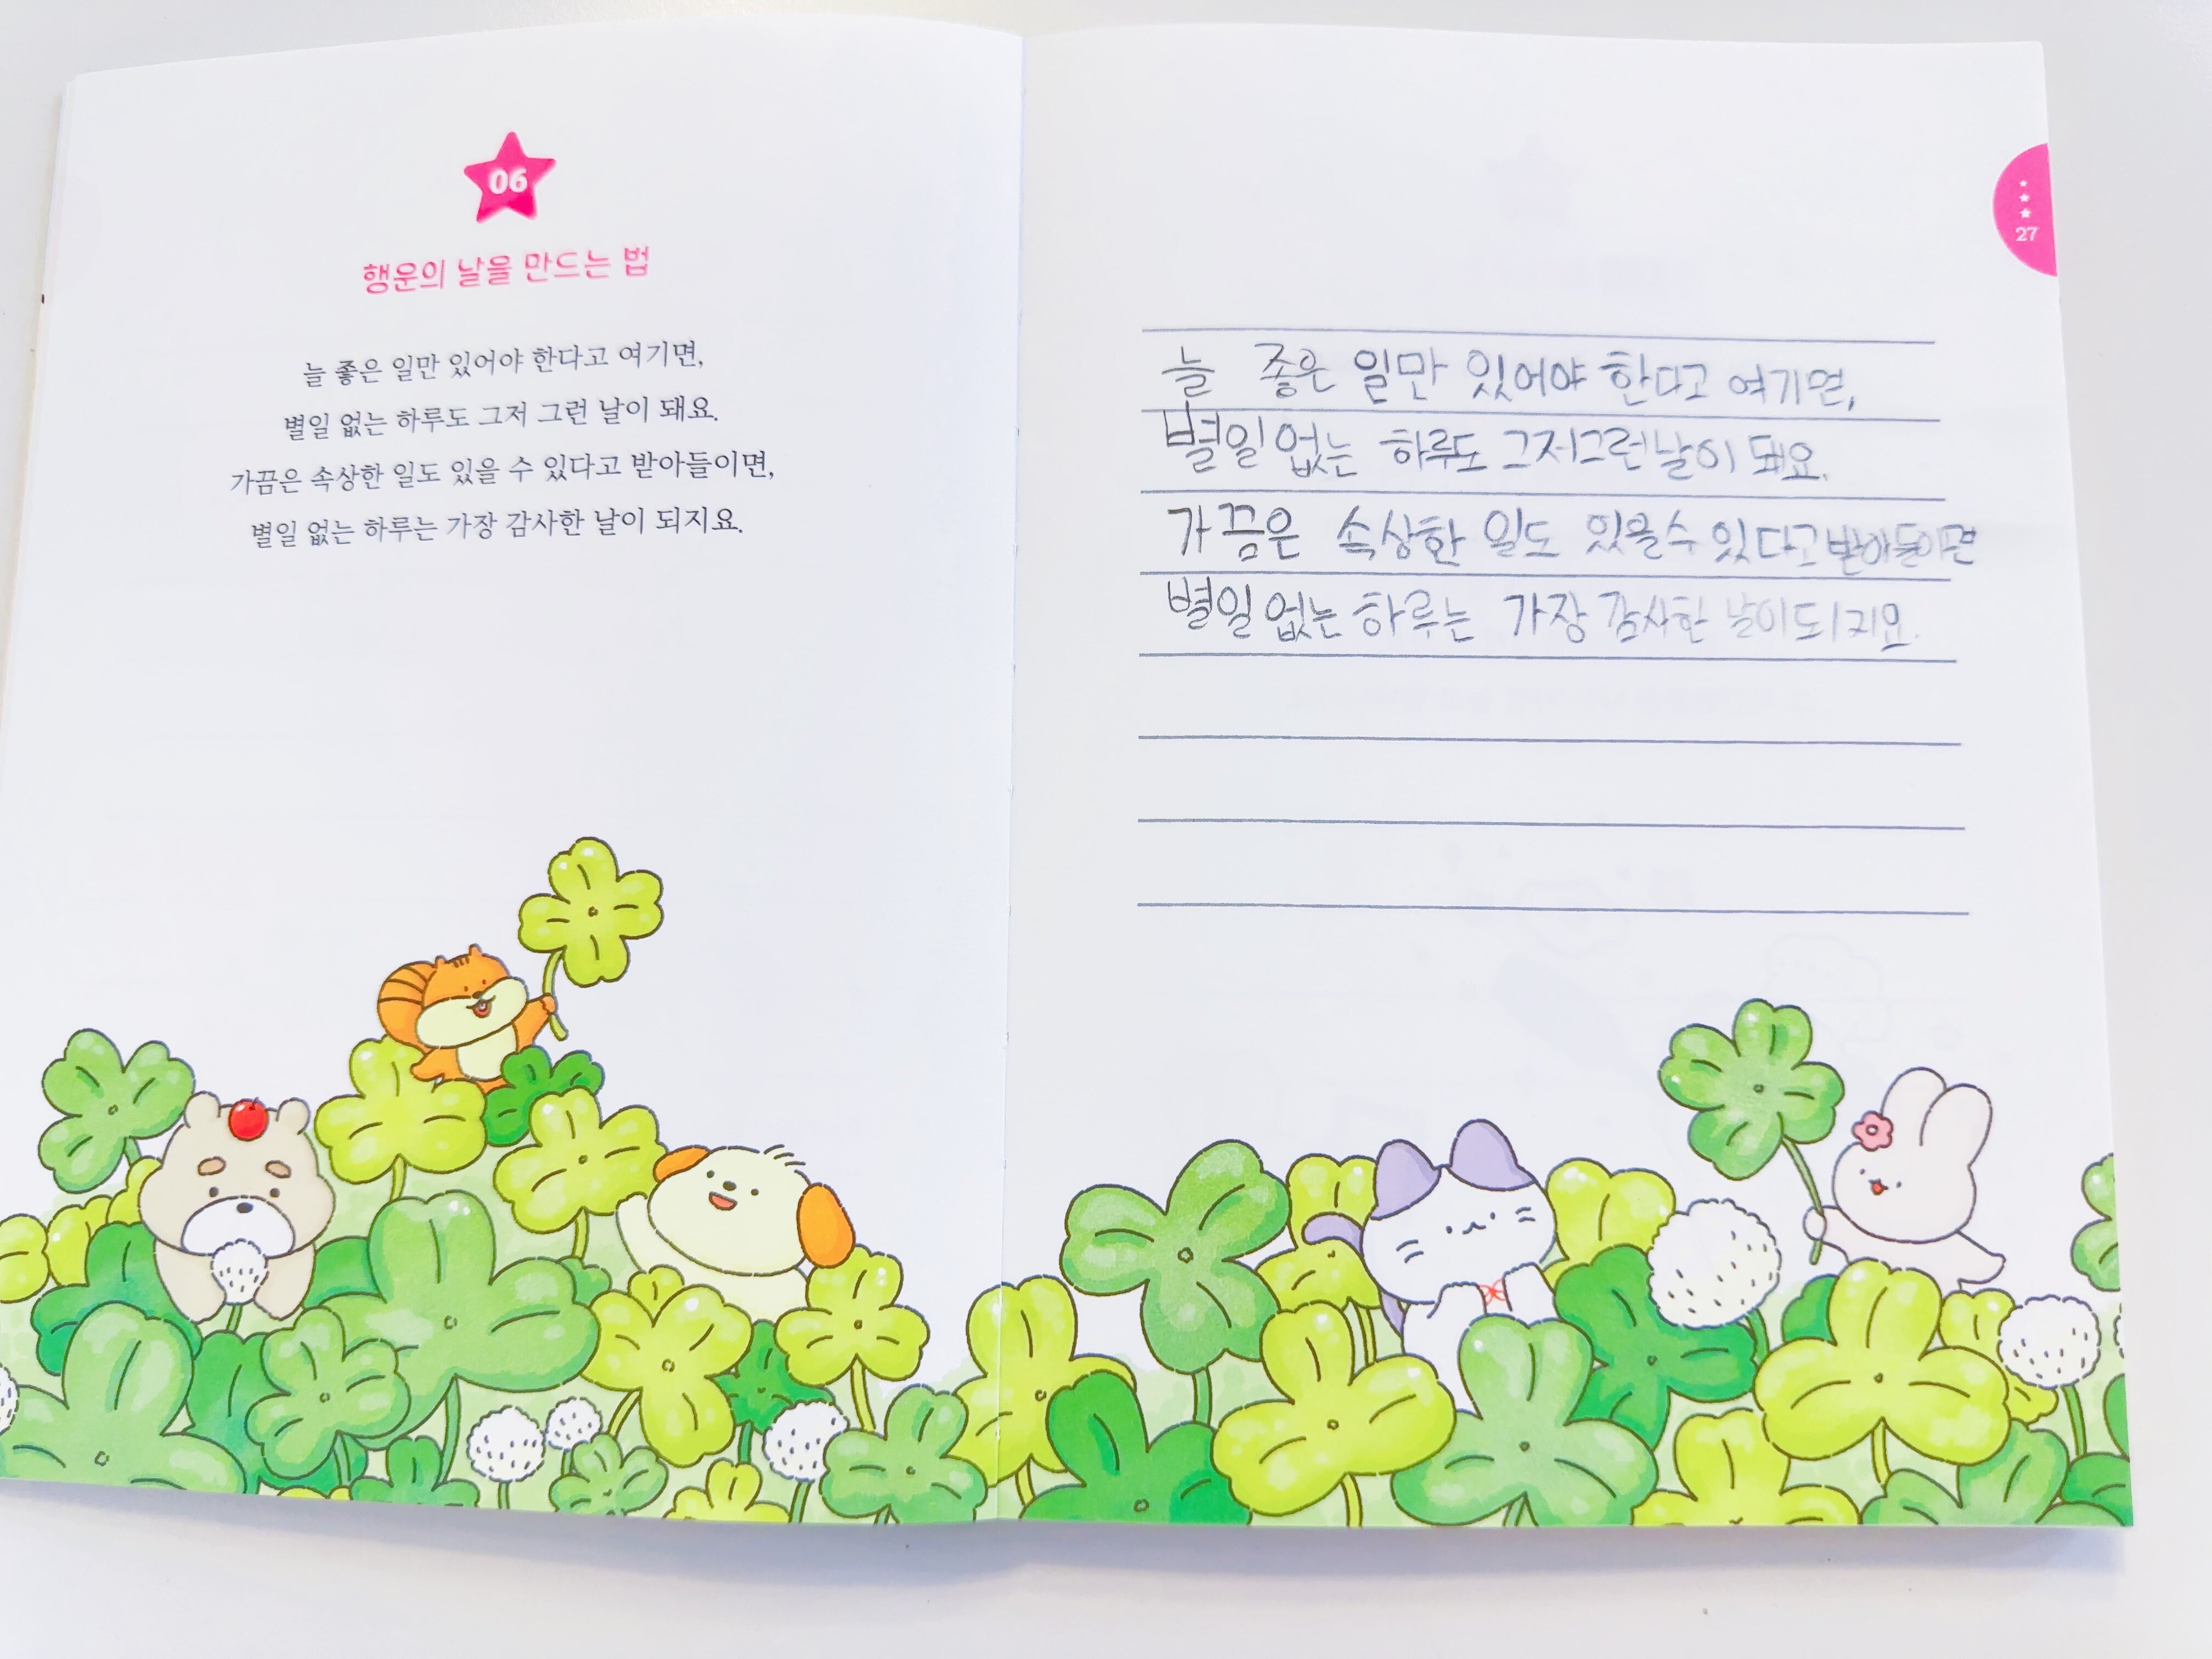 06
행운의 날을 만드는 법
늘 좋은 일만 있어야 한다고 여기면,
별일 없는 하루도 그저 그런 날이 돼요.
가끔은 속상한 일도 있을 수 있다고 받아들이면,
별일 없는 하루는 가장 감사한 날이 되지요.
27
늘 좋은 일만 있어야 한다고 여기면,
별일 없는 하루도 그저그런날이 돼요.
가끔은 속상한 일도 있을수 있다고받아들이면
별일 없는 하루는 가장 감사한 날이되지요.